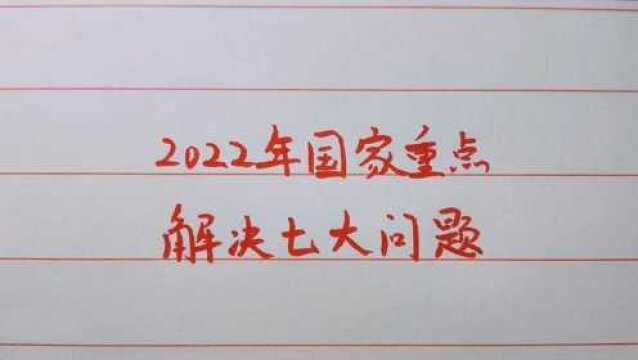 2022年国家重点
解决七大问题